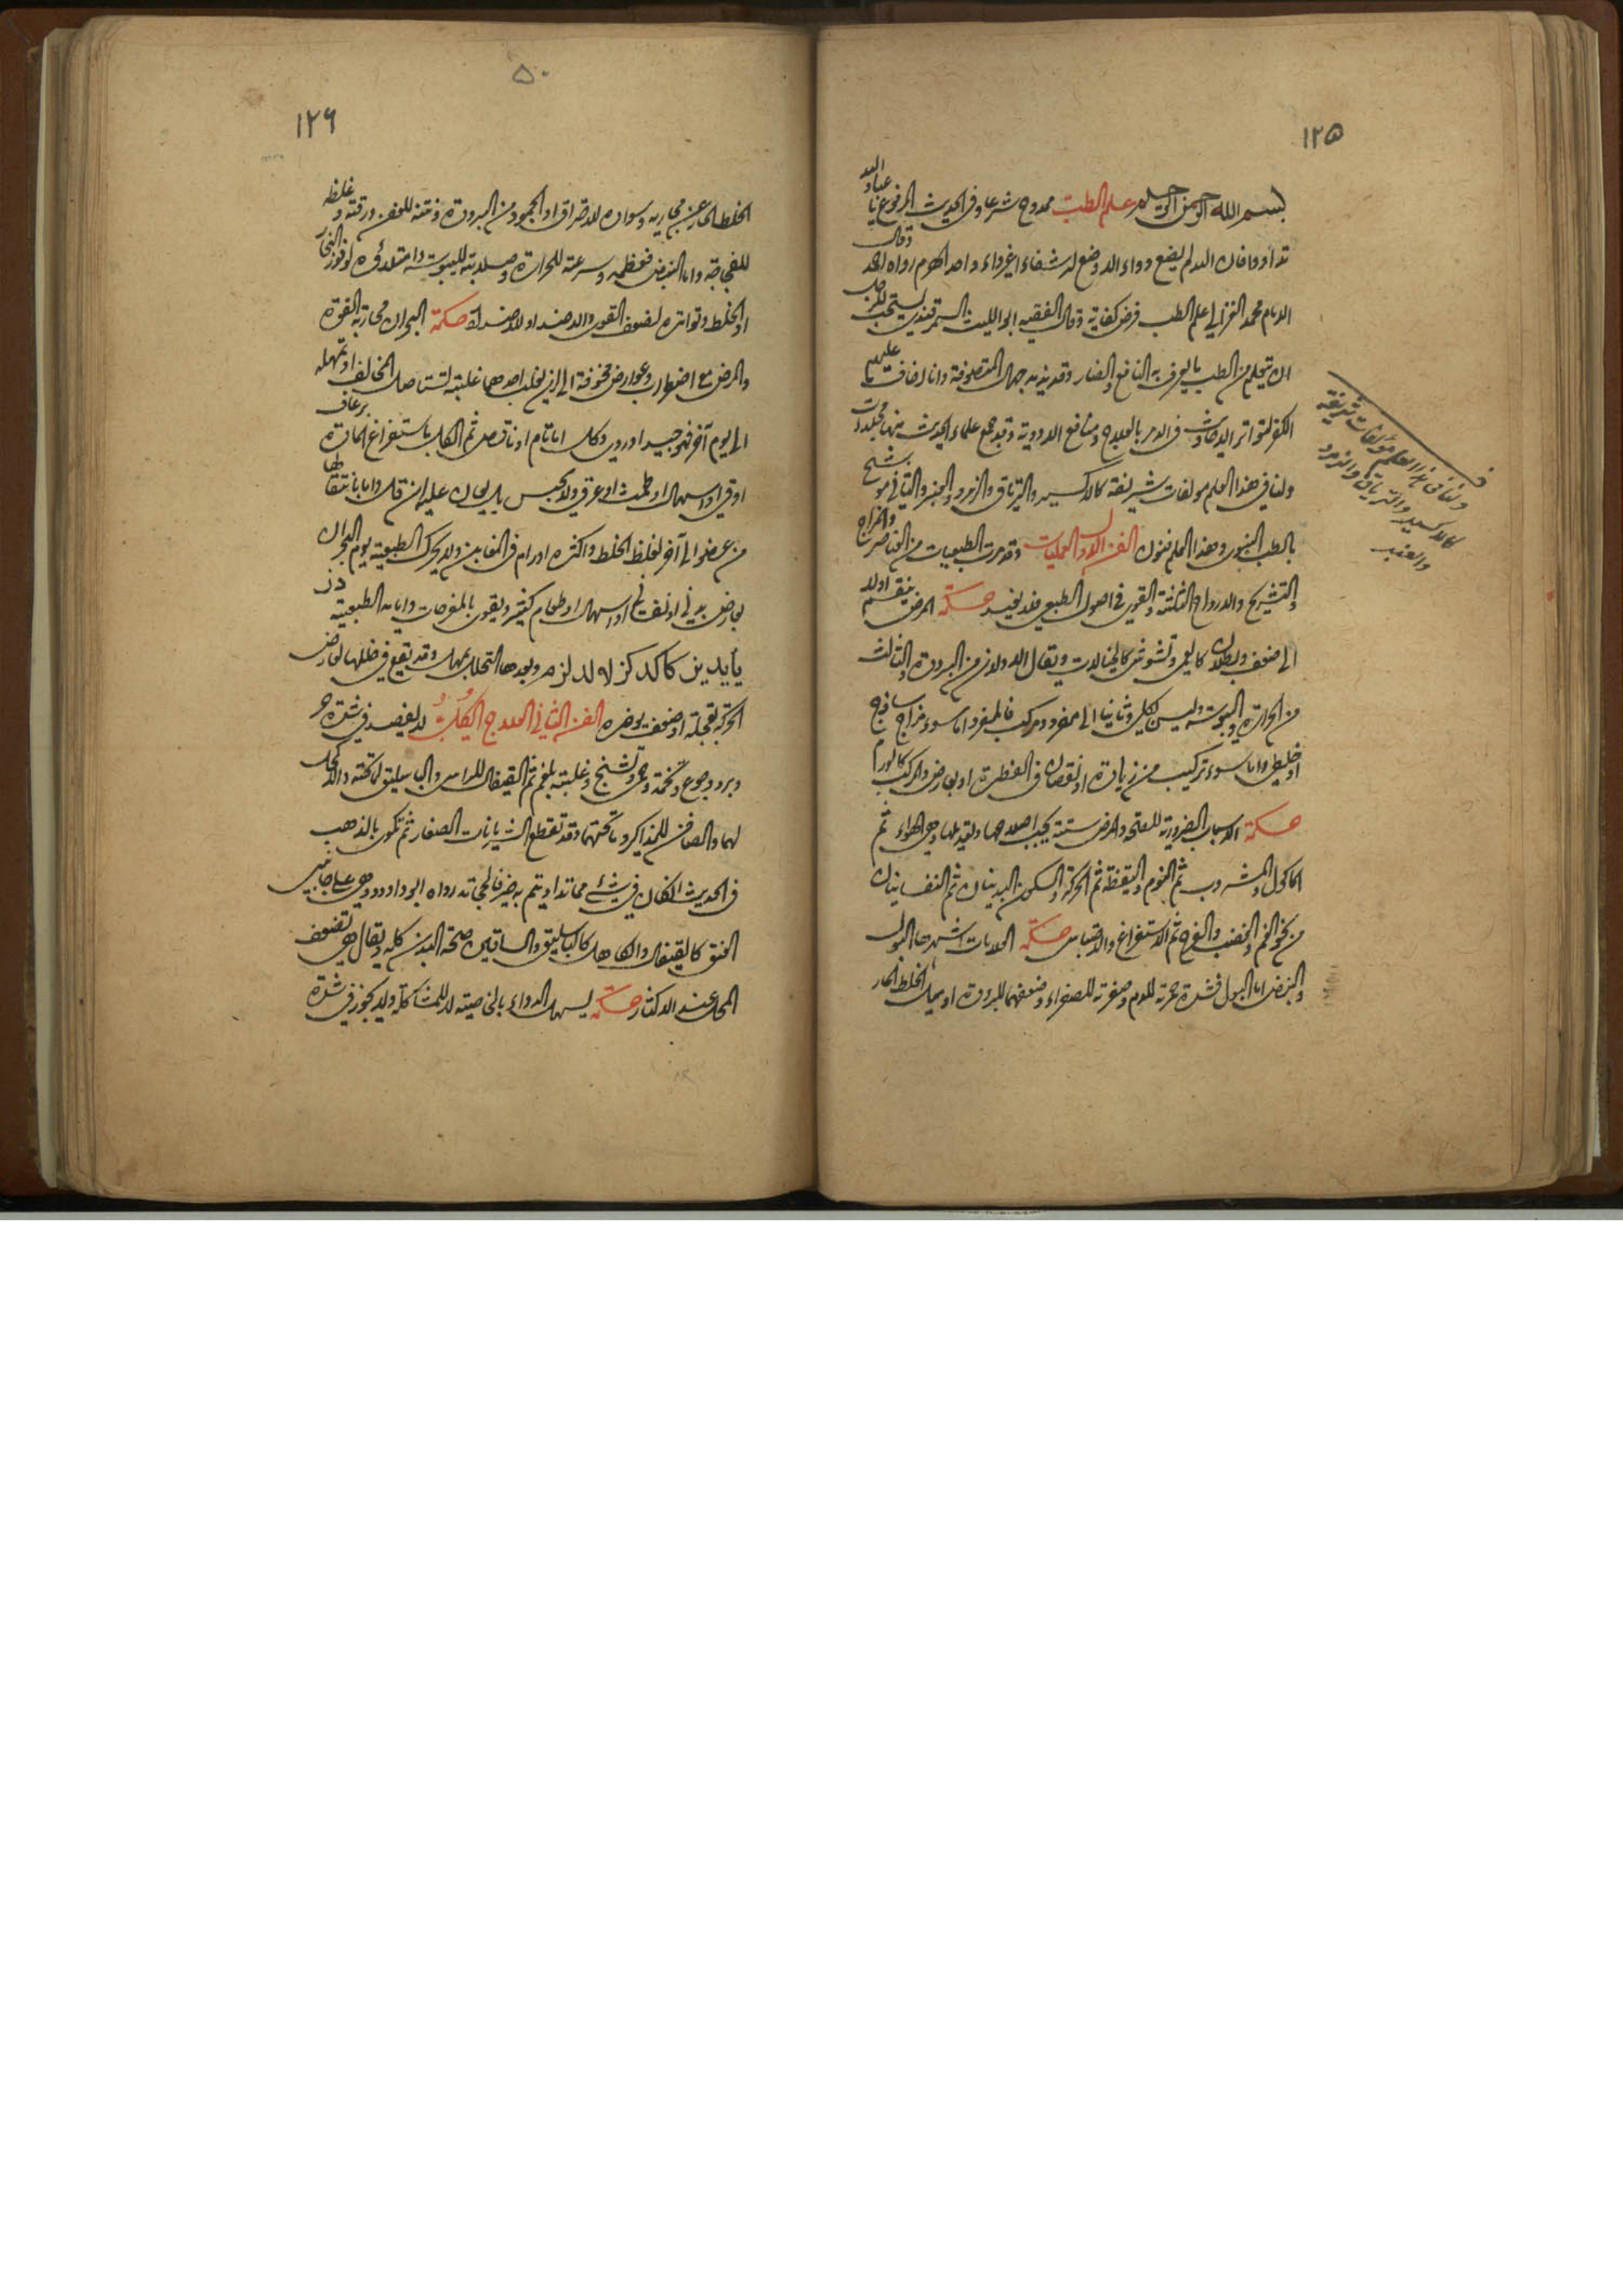 ١٢٥
بسم الله الرحمن الرحيم علم الطب ممدوح شرعا وفى الحديث المرفوع يا عباد الله
تداووا فان الله لم يضع دواء الا وضع له شفاء غير داء واحد الهرم رواه احمد وقال
الامام محمد الغزالي علم الطب فرض كفاية وقال الفقيه ابو الليث السمرقندي يستحب للرجل
ان يتعلم من الطب ما يعرف به النافع والضار وقد يذمه جهال المتصوفة وانا لخائف عليهم
الكفر لتواتر الاحاديث فى الامر بالعلاج ومنافع الادوية وقد جمع علماء الحديث منها مجلدات
ولنا في هذا العلم مولفات شريفة كالاكسير والترياق والزمرد والعنبر والياقوتي
بالطب النبوى وهذا العلم فنون الفن الاول العمليات وقد مرت الطبيعيات من العناصر والمزاج
والتشريح والارواح الثلثة والقوى في اصول الطبيعى فلا نعيد حكمة المرض ينقسم اولا
الى ضعف وبطلان كالعمى وتشوش كالخيالات ويقال الاولان من البرودة والثالث
من الحرارة واليبوسة وليس بكلى وثانيا الى مفرد ومركب فالمفرد اما سوء مزاج ساذج
او خلطى واما سوء تركيب من زيادة او نقصان فى الفطرة او بعارض والمركب كالورم
حكمة الاسباب الضرورية للصحة والمرض ستة يجب اصلاحها وتعديلها وهي الهواء ثم
الماكول والمشروب ثم النوم واليقظة ثم الحركة والسكون البدنيان ثم النفسانيان
من نحو الغم والغضب والفرح ثم الاستفراغ والاحتباس حكمة العلامات اشهرها البول
والنبض اما البول فشدة حمرته للدم وصفرته للصفراء وضعفهما للبرودة او ميل الخلط الحار
ولنا في هذا العلم مولفات شريفة
كالاكسير والترياق والزمرد
والعنبر
٥٠
١٢٦
الخلط الحار عن مجاريه وسواده للاحتراق او الجمود من البرودة ونتنه للعفن ورقته وغلظه
للفجاجة واما النبض فعظمه وسرعته للحرارة وصلابته لليبوسة وامتلاؤه لوفور البخار
او الخلط وتواتره لضعف القوى والاضداد للاضداد حكمة البحران محاربة القوة
والمرض مع اضطراب وعوارض مخوفة الى ان يغلب احدهما غلبة تستاصل المخالف او تمهله
الى يوم آخر فهو جيد او ردى وكل اما تام او ناقص ثم الكل باستفراغ المادة برعاف
او قئ او اسهال او طمث او عرق ولا يحبس بل يعان عليه ان قل واما بانتقالها
من عضو الى آخر لغلظ الخلط واكثره اورام فى المغابن ولا يحرك الطبيعة يوم البحران
بعارض بدنى او نفسانى او اسهال او طعام كثير ويقوى بالمفرحات وايامه الطبيعية
يأيدين كا كد كز لا لد لز م وبعدها التحلل بمهل وقد يقع في خللها لعارض
الحركة بعجلة او ضعف يوخره الفن الثاني العلاج الكلى لا يفصد في شدة حر
وبرد وجوع وتخمة وتشنج وغلبة بلغم ثم القيفال للراس والباسليق لما تحته والاكحل
لهما والصافن للمذاكير وما تحتها وقد تقطع الشريانات الصغار ثم تكوى بالذهب
فى الحديث ان كان في شئ مما تداويتم به خير فالحجامة رواه ابو داود وهي على جانبى
العنق كالقيفال والكاهل كالباسليق والساقين صحة البدن كله ويقال هي تضعف
المحل عند الاكثار حكمة يسهل الدواء بالخاصية لا للمشاكلة ولا يجوز في شدة